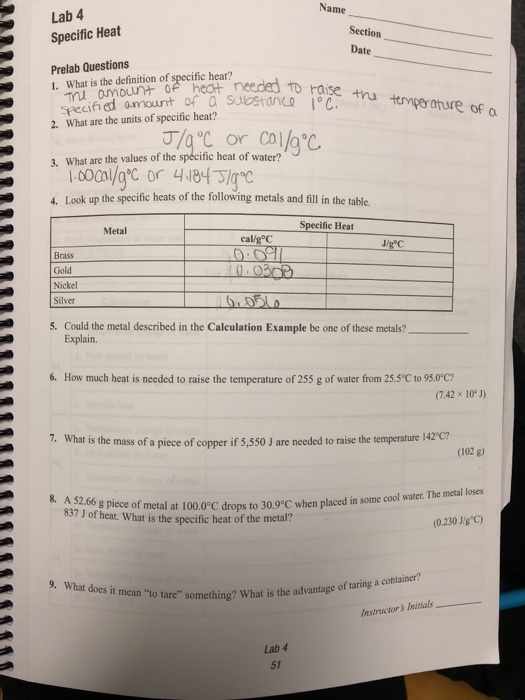 Lab 4
Specific Heat
Name
Section
Date
Prelab Questions
1. What is the definition of specific heat?
The amount of heat needed to raise the temperature of a
specified amount of a substance 1°C.
2. What are the units of specific heat?
J/g°C or cal/g°C
3. What are the values of the specific heat of water?
1.00cal/g°C or 4.184 J/g°C
4. Look up the specific heats of the following metals and fill in the table.
Metal Specific Heat
cal/g°C J/g°C
Brass 0.091
Gold 0.0308
Nickel
Silver
5. Could the metal described in the Calculation Example be one of these metals?
Explain.
6. How much heat is needed to raise the temperature of 255 g of water from 25.5°C to 95.0°C?
(7.42 × 10⁴ J)
7. What is the mass of a piece of copper if 5,550 J are needed to raise the temperature 142°C?
(102 g)
8. A 52.66 g piece of metal at 100.0°C drops to 30.9°C when placed in some cool water. The metal loses
837 J of heat. What is the specific heat of the metal?
(0.230 J/g°C)
9. What does it mean "to tare" something? What is the advantage of taring a container?
Instructor's Initials
Lab 4
51